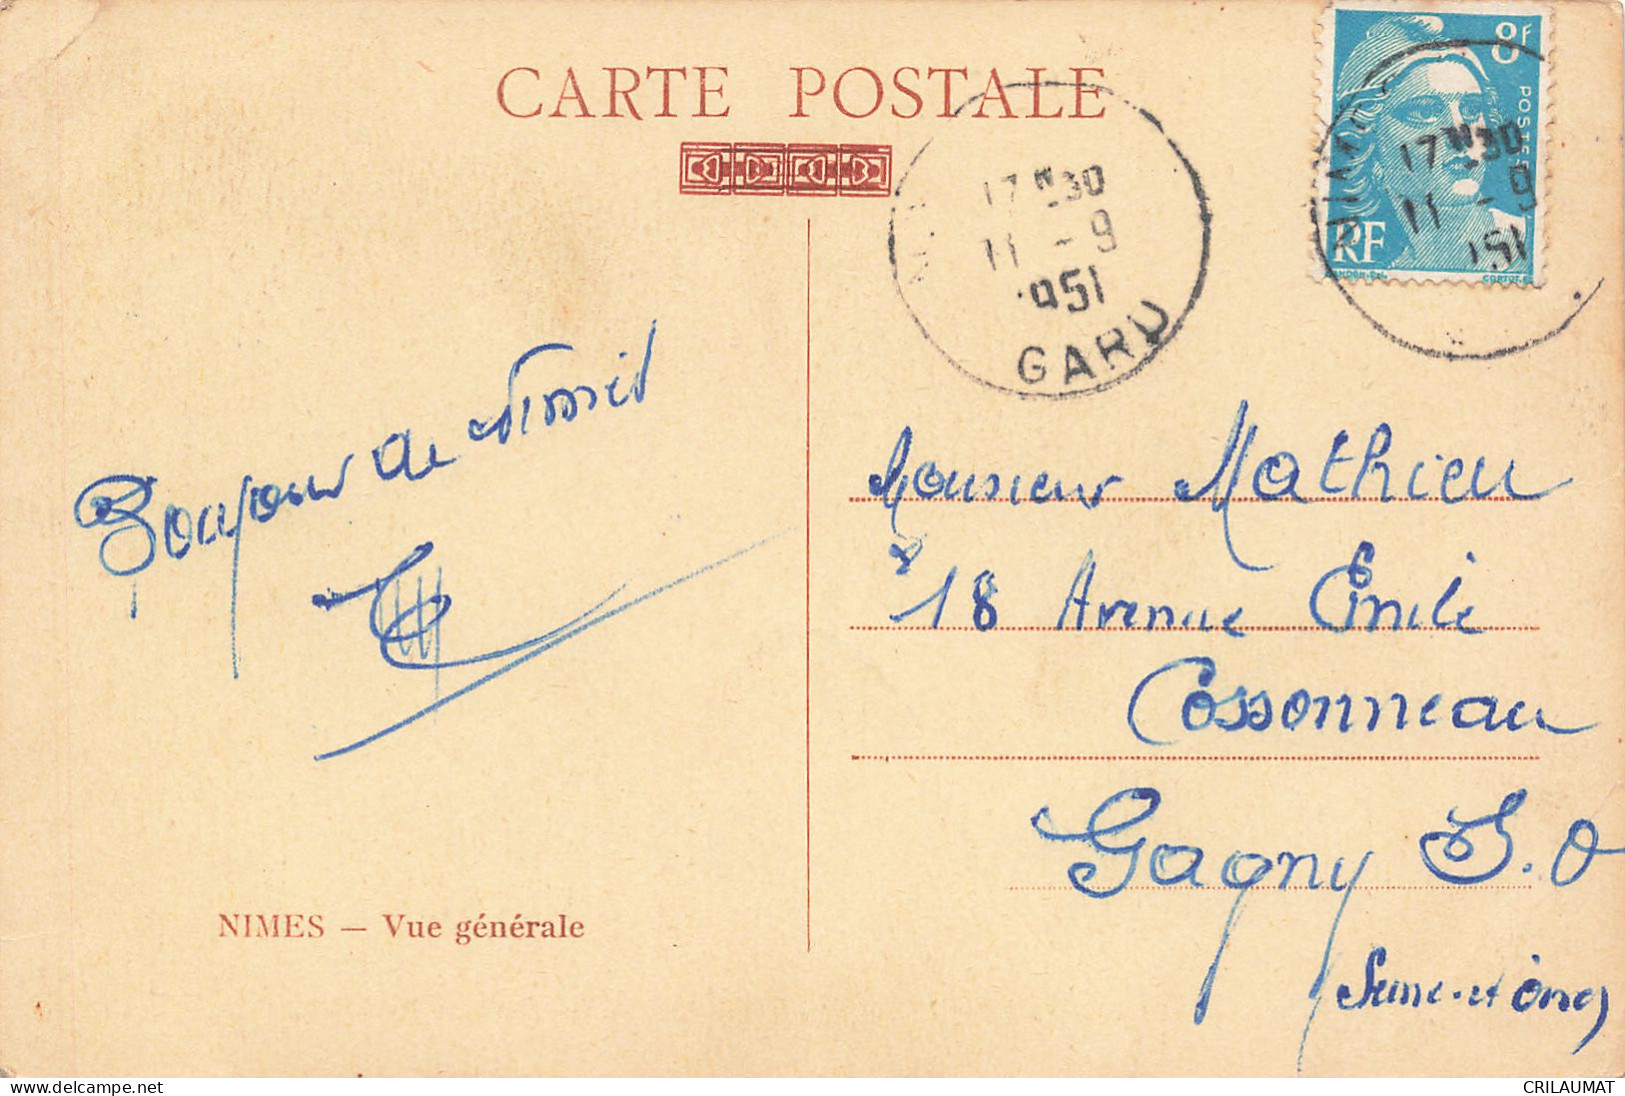 CARTE POSTALE
8F
POSTES
RF
17H30
11 - 9
1951
GARD
17H30
11 - 9
1951
Bonjour de Nimes
Monsieur Mathieu
18 Avenue Emile
Cossonneau
Gagny S.O
Seine-et Oise
NIMES — Vue générale
www.delcampe.net
CRILAUMAT